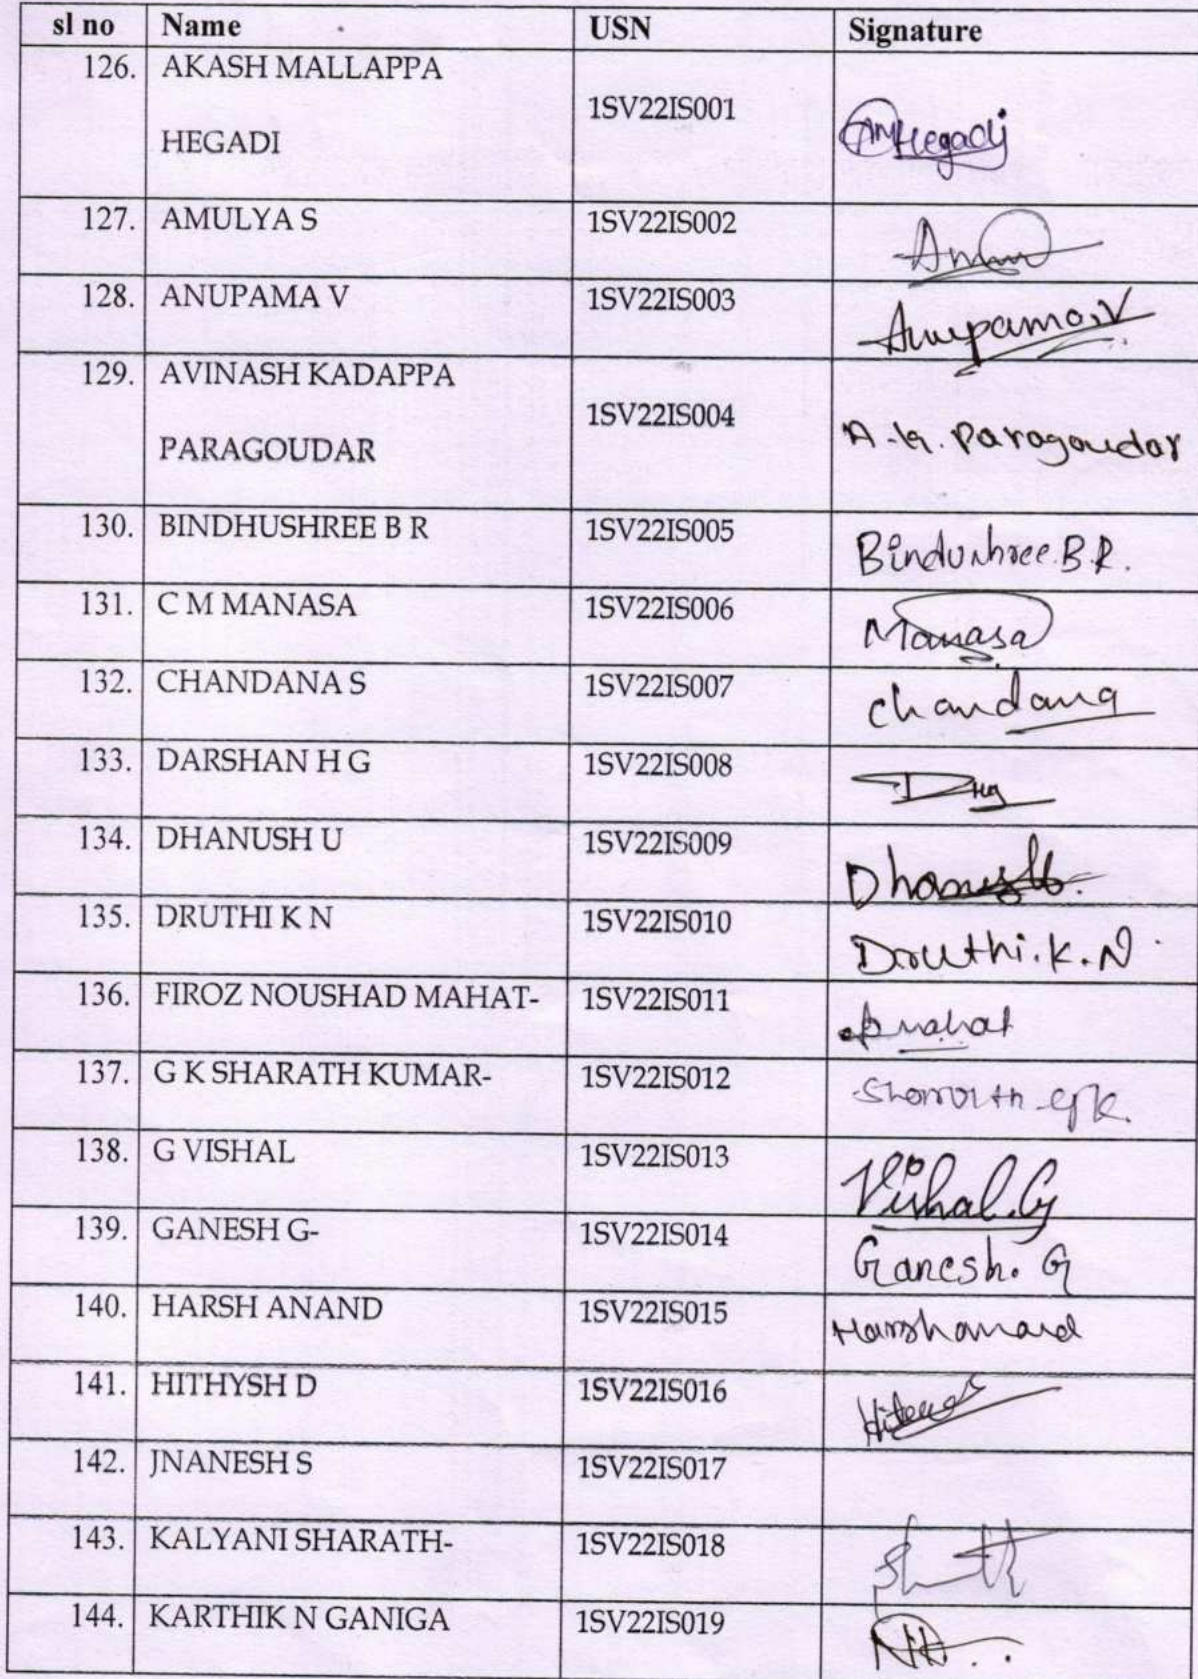 sl no Name USN Signature
126. AKASH MALLAPPA
1SV22IS001 AMHegadi
HEGADI
127. AMULYA S 1SV22IS002
128. ANUPAMA V 1SV22IS003 Anupama.V
129. AVINASH KADAPPA
1SV22IS004 A.K. Paragoudar
PARAGOUDAR
130. BINDHUSHREE B R 1SV22IS005 Bindushree.B.R.
131. C M MANASA 1SV22IS006 Manasa
132. CHANDANA S 1SV22IS007 Chandana
133. DARSHAN H G 1SV22IS008 DHG
134. DHANUSH U 1SV22IS009
135. DRUTHI K N 1SV22IS010 Druthi.K.N
136. FIROZ NOUSHAD MAHAT- 1SV22IS011
137. G K SHARATH KUMAR- 1SV22IS012 Sharath GK
138. G VISHAL 1SV22IS013 Vishal.G
139. GANESH G- 1SV22IS014 Ganesh. G
140. HARSH ANAND 1SV22IS015 Harshanand
141. HITHYSH D 1SV22IS016
142. JNANESH S 1SV22IS017
143. KALYANI SHARATH- 1SV22IS018
144. KARTHIK N GANIGA 1SV22IS019